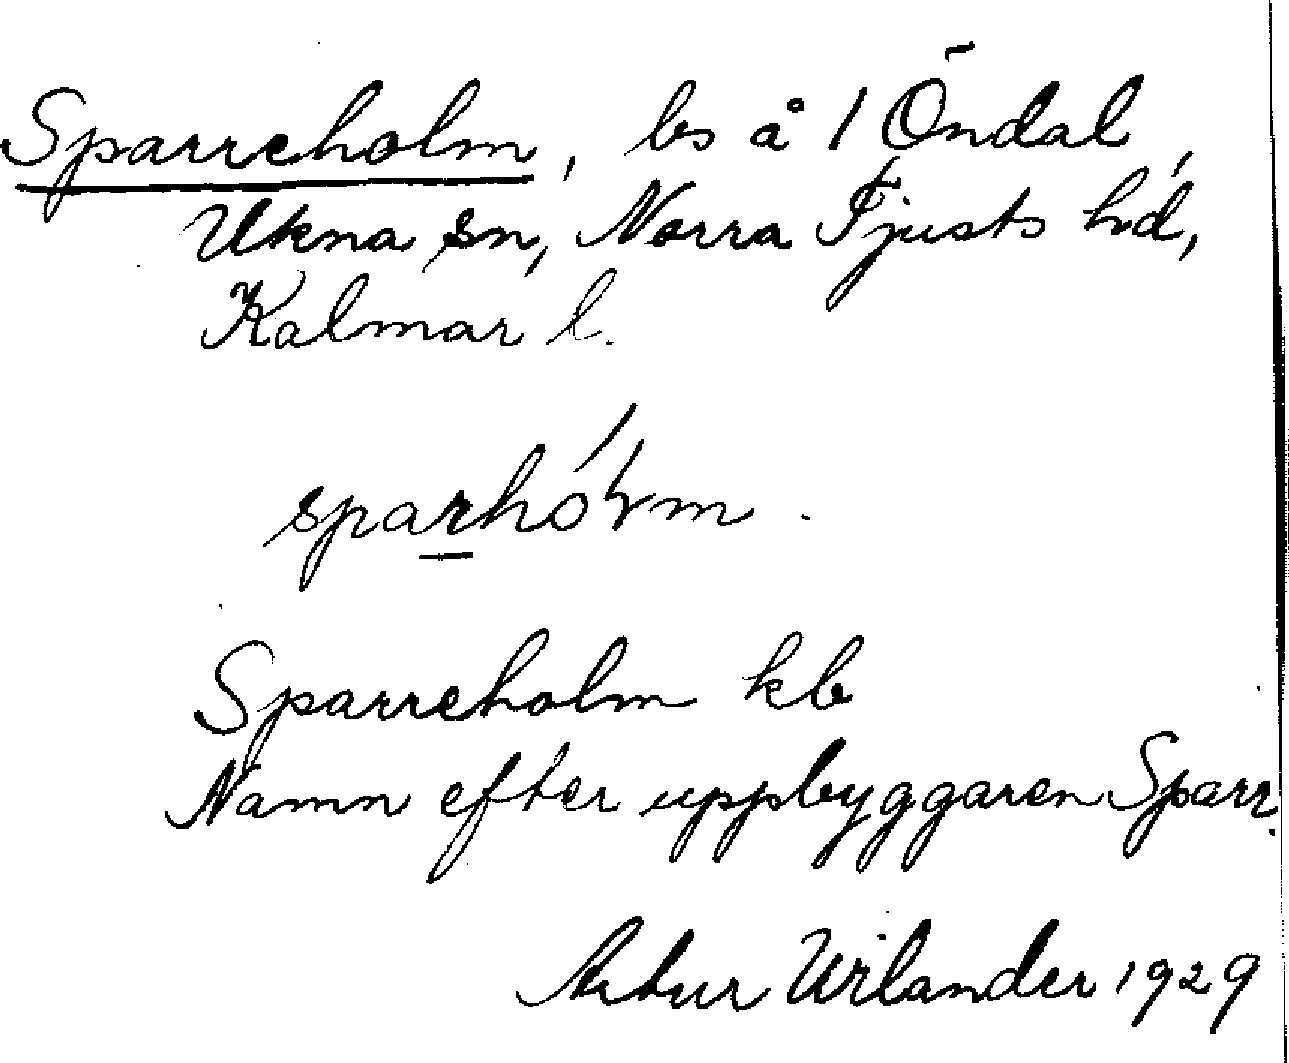 Sparreholm, ls å 1 Öndal,
Ukna sn, Norra Tjusts hd,
Kalmar l.
Sparreholm kb
Namn efter uppbyggaren Sparr.
Artur Wilander 1929